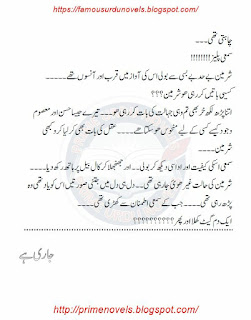 https://famousurdunovels.blogspot.com/
چاہتی تھی۔۔۔۔
سمعی پلیز !!!!!!!!!
شرمین بے حد بے بسی سے بولی اس کی آواز میں کرب اور آنسوں تھے۔۔۔۔۔
کیسی باتیں کر رہی ہو شرمین ؟؟؟
اتنا پڑھ لکھ کر بھی تم ایسی جہالت کی بات کر رہی ہو۔۔۔ تیرے جیسا حسن اور معصوم
وجود کیسے کسی کے لیے منحوس ہو سکتا ہے۔۔۔۔ عقل کی بات بھی کر لیا کرو کبھی
شرمین۔۔۔۔
سمعی اسکی کیفیت اور اداسی دیکھ کر بولی۔۔ اور جھنجھلا کر کال بیل پر ہاتھ رکھ دیا۔۔۔۔
شرمین کی حالت غیر ہوئی جا رہی تھی۔۔ دل ہی دل میں جتنی صورتیں اس کو یاد تھی وہ
پڑھ رہی تھی۔۔۔۔ جب کے سمعی اطمنان سے کھڑی تھی۔۔۔۔
ایک دم گیٹ کھلا اور پھر ؟؟؟؟؟؟؟؟؟؟
جاری ہے
http://primenovels.blogspot.com/